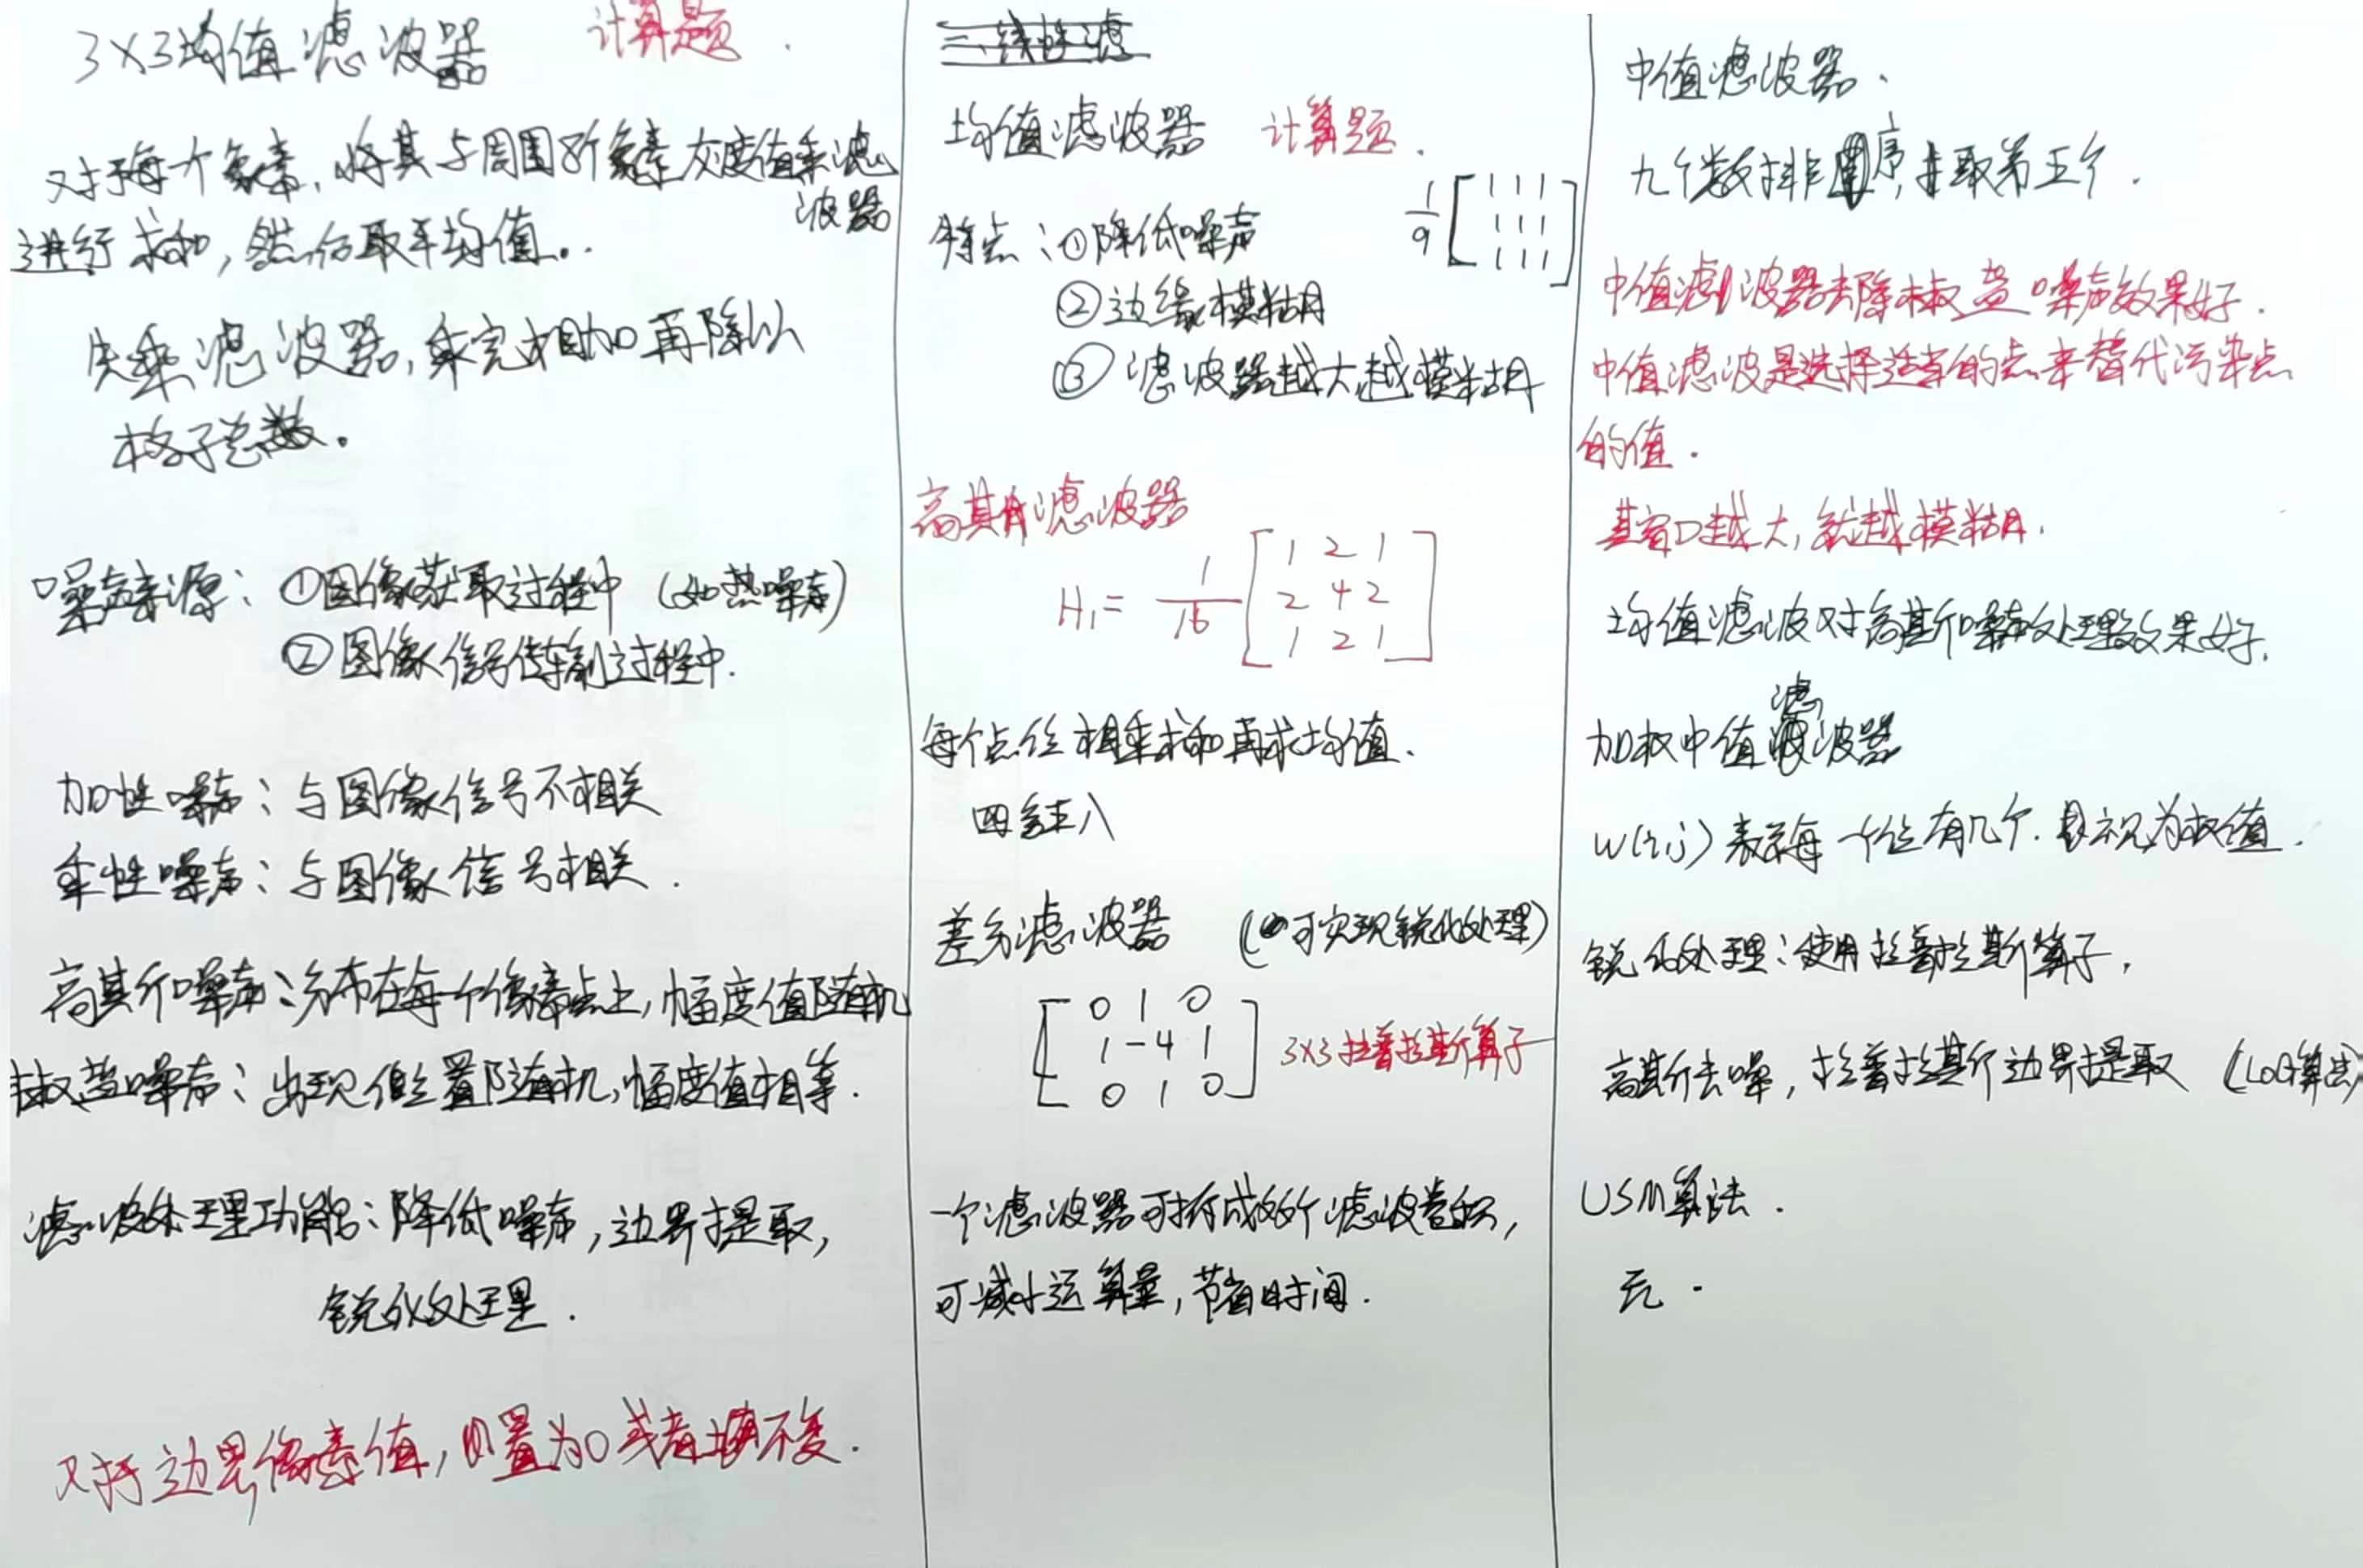 3×3均值滤波器 计算题.
对于每个像素,将其与周围8个像素灰度值乘滤波器
进行求和,然后取平均值。
先乘滤波器,乘完相加再除以
格子总数。
噪声来源:①图像获取过程中(如热噪声)
②图像信号传输过程中.
加性噪声:与图像信号不相关
乘性噪声:与图像信号相关.
高斯噪声:分布在每个像素点上,幅度值随机
椒盐噪声:出现位置随机,幅度值相等.
滤波处理功能:降低噪声,边界提取,
锐化处理.
对于边界像素值,则置为0或者填不变.
三、线性滤
均值滤波器 计算题.
特点:①降低噪声
1/9 [1 1 1
1 1 1
1 1 1]
②边缘模糊
③滤波器越大越模糊
高斯滤波器
H₁= 1/16 [1 2 1
2 4 2
1 2 1]
每个点位相乘求和再求均值.
四舍五入
差分滤波器 (可实现锐化处理)
[0 1 0
1 -4 1
0 1 0] 3×3拉普拉斯算子
一个滤波器可拆成好几个滤波卷积,
可减小运算量,节省时间.
中值滤波器.
九个数排序,取第五个.
中值滤波器去除椒盐噪声效果好.
中值滤波是选择适当的点来替代污染点
的值.
其窗口越大,就越模糊.
均值滤波对高斯噪声处理效果好.
加权中值滤波器
W(i,j)表示每一个位有几个.视为权值.
锐化处理:使用拉普拉斯算子,
高斯去噪,拉普拉斯边界提取(LoG算法)
USM算法.
无.